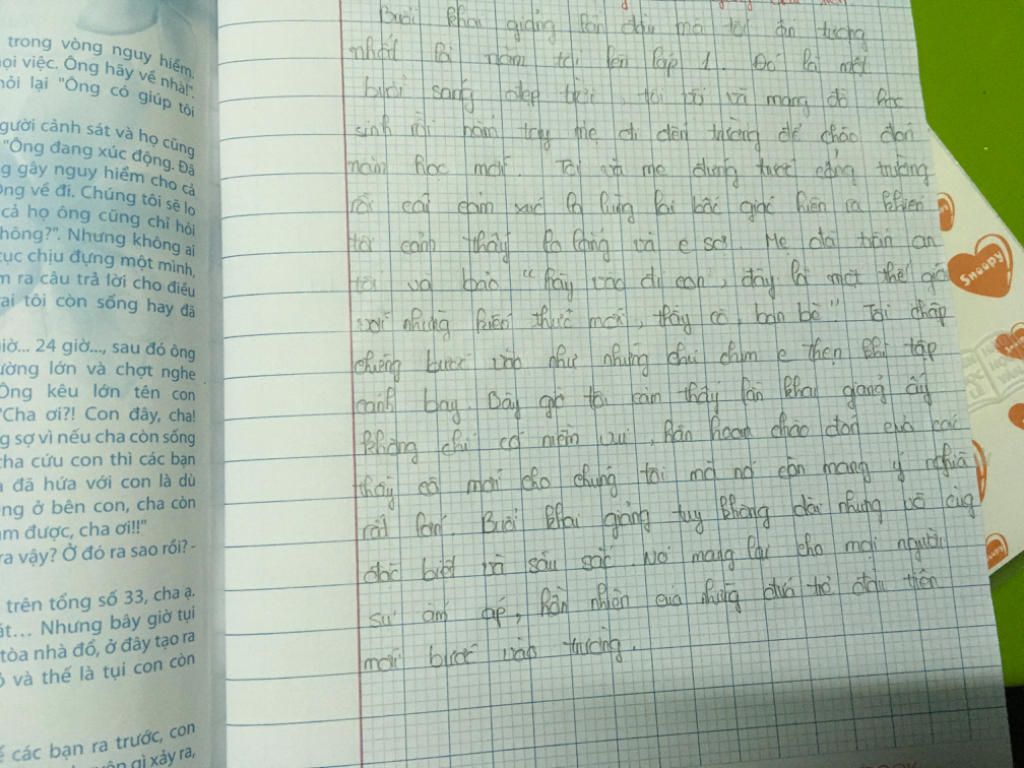 trong vòng nguy hiểm,
ọi việc. Ông hãy về nhà!".
ỏi lại "Ông có giúp tôi
gười cảnh sát và họ cũng
"Ông đang xúc động. Đã
g gây nguy hiểm cho cả
Ông về đi. Chúng tôi sẽ lo
cả họ ông cũng chỉ hỏi
hông?". Nhưng không ai
tục chịu đựng một mình,
m ra câu trả lời cho điều
rai tôi còn sống hay đã
giờ... 24 giờ..., sau đó ông
ường lớn và chợt nghe
Ông kêu lớn tên con
"Cha ơi?! Con đây, cha!
g sợ vì nếu cha còn sống
cha cứu con thì các bạn
a đã hứa với con là dù
ng ở bên con, cha còn
àm được, cha ơi!!"
ra vậy? Ở đó ra sao rồi? -
trên tổng số 33, cha ạ.
át... Nhưng bây giờ tụi
tòa nhà đổ, ở đây tạo ra
ỏ và thế là tụi con còn
ế các bạn ra trước, con
gì xảy ra,
Buổi khai giảng lần đầu mà tôi ấn tượng
nhất là năm tôi lên lớp 1. Đó là một
buổi sáng đẹp trời, tôi và mang đồ học
sinh rồi nắm tay mẹ đi đến trường để chào đón
năm học mới. Tôi và mẹ đứng trước cổng trường
rồi cái cảm xúc lạ lùng lại bất giác hiện ra khiến
tôi cảnh thấy lo lắng và e sợ. Mẹ đã trấn an
tôi và bảo "hãy vào đi con, đây là một thế giới
với những kiến thức mới, thầy cô, bạn bè" Tôi chập
chững bước vào như những chú chim e thẹn khi tập
canh bay. Bây giờ tôi cảm thấy lần khai giảng ấy
không chỉ có niềm vui, hân hoan chào đón của các
thầy cô mới cho chúng tôi mà nó còn mang ý nghĩa
rất lớn. Buổi khai giảng tuy không dài nhưng vô cùng
đặc biệt và sâu sắc. Nó mang lại cho mọi người
sự ấm áp, hồn nhiên của những đứa trẻ đầu tiên
mới bước vào trường.
Snoopy